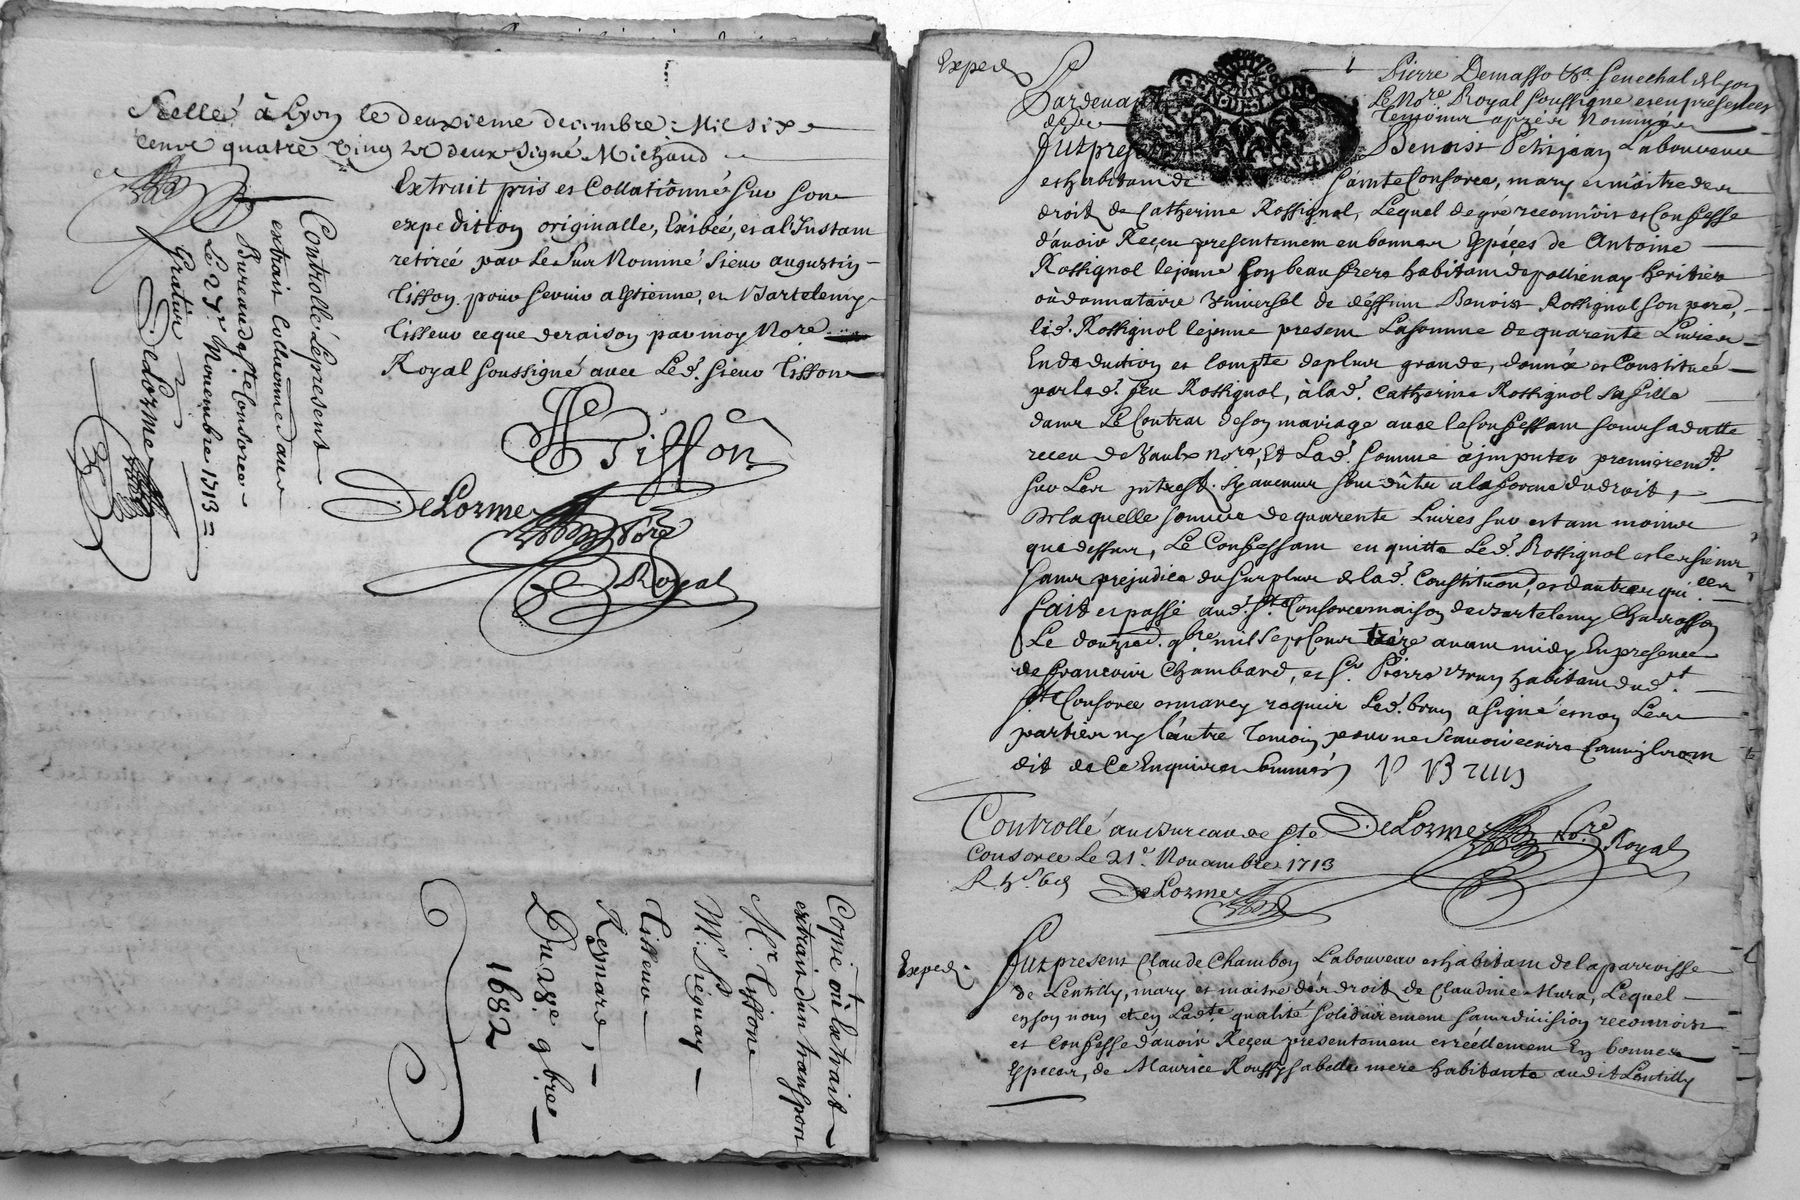 Scellé à Lyon le deuxieme decembre Mil six
cens quatre vingt deux signé Michaud
Extrait pris et Collationné sur son
expedition originalle, Exibée, et al'Instant
retirée par Le sus Nommé sieur augustin
Tisson pour servir a Estienne, et Bartelemy
Tisseur ce que de raison par moy No.re
Royal soussigné avec Led. sieur Tisson
Tisson
DeLorme No.re
Royal
Controllé Le present
extrait Collationné dans
Bureau de Ste Consorce
Le 21e Novembre 1713
Gratis
DeLorme
Copie ou extrait
extrait d'un transport
Mr Tisson
Mr Siegnay
Tisseur
Reynard,
Du 28e 9bre
1682
Exped
Pardevant
Pierre Demasso Senechal de Lyon
Le No.re Royal soussigné et en presence des
temoins après Nommés
fut present
Benoist Petitjean Laboureur
et habitant de Sainte Consorce, mary et maitre des
droits de Catherine Rossignol, Lequel de gré reconnoist et Confesse
d'avoir Reçeu presentement en bonnes Espèces de Antoine
Rossignol lejeune son beau frere habitant de pollienay heritier
ou donnataire Universel de deffunt Benoist Rossignol son pere,
led. Rossignol lejeune present La somme de quarente Livres
En deduction et Compte de plus grande, donnée et Constituée
par led. feu Rossignol, à lad. Catherine Rossignol sa fille
dans Le Contrat de son mariage avec le Confessant sous sa datte
receu de Vaulx no.re, Et Lad. somme a imputer premierement
sur Les intrest. sy aucuns sont dûts a la forme du droit,
De laquelle somme de quarente Livres sur estant moins
que dessus, Le Confessant en quitte Led. Rossignol et les siens
sans prejudice du surplus de lad. Constitution, et d'autres
fait et passé aud. Ste Consorce maison de Bartelemy Charosson
Le 9bre mil sept cent treze avant midy En presence
de francois Chambard, et Sr. Pierre Brun habitant dud.t
Ste Consorce et marcy requis Led. brun a signé et non Les
parties ny l'autre Temoin pour ne scavoir ecrire
dit de Ce Enquis et sommés P BRUN
Controllé au Bureau de Ste
Consorce Le 21e Novembre 1713
DeLorme
DeLorme No.re Royal
Exped.
fut present Claude Chambon Laboureur et habitant de la parroisse
de Lentilly, mary et maitre des droits de Claudine Mura, Lequel
en son nom et en Lad.te qualité solidairement sans division reconnoist
et Confesse d'avoir Reçeu presentement et réellement En bonnes
Espèces, de Maurice sa belle mere habitante audit Lentilly